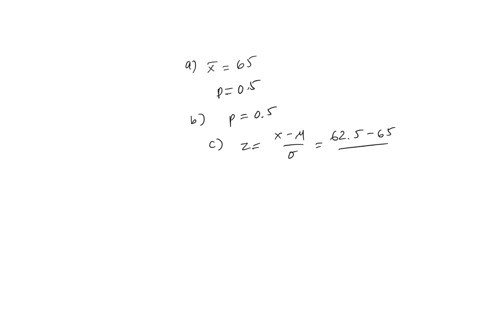 a) x̄ = 65
p = 0.5
b) p = 0.5
c) z = x-μ/σ = 62.5-65/